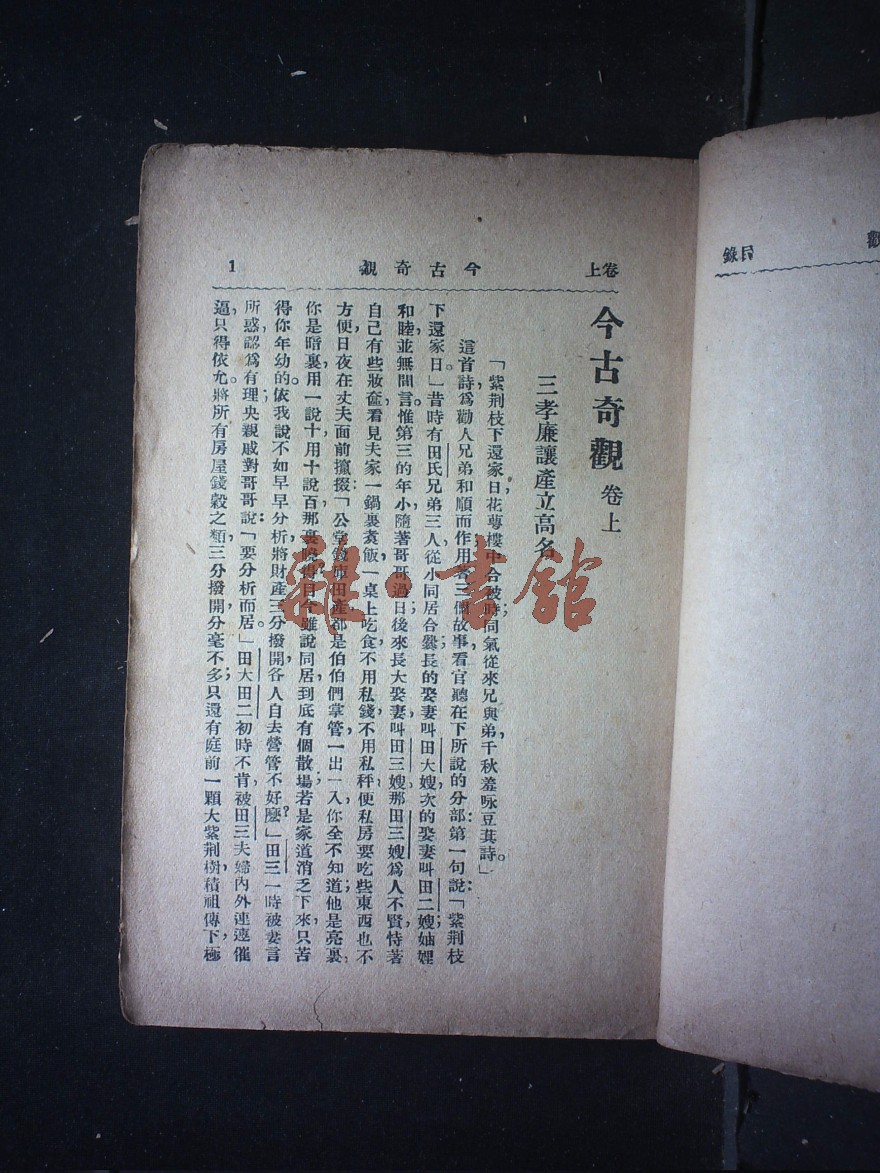 卷上　今古奇觀　1
今古奇觀 卷上
三孝廉讓產立高名
「紫荊枝下還家日，花萼樓中合被時；同氣從來兄與弟，千秋羞咏豆萁詩。」
這首詩，爲勸人兄弟和順而作，用着三個故事，看官聽在下所說的分部：第一句說：「紫荊枝
下還家日」昔時有田氏兄弟三人，從小同居合爨，長的娶妻叫田大嫂，次的娶妻叫田二嫂；妯娌
和睦，並無閒言。惟第三的年小，隨著哥哥過日；後來長大娶妻叫田三嫂，那田三嫂爲人不賢，恃著
自己有些妝奩，看見夫家一鍋裏煑飯，一桌上吃食，不用私錢，不用私秤，便私房要吃些東西，也不
方便，日夜在丈夫面前攛掇「公堂錢庫田產，都是伯伯們掌管，一出一入，你全不知道；他是亮裏，
你是暗裏，用一說十，用十說百，那裏曉得目今雖說同居，到底有個散場；若是家道消乏下來，只苦
得你年幼的。依我說不如早早分析，將財產三分撥開，各人自去營管，不好麼？」田三一時被妻言
所惑，認爲有理，央親戚對哥哥說：「要分析而居。」田大田二初時不肯，被田三夫婦內外連連催
逼，只得依允。將所有房屋錢穀之類，三分撥開，分毫不多；只還有庭前一顆大紫荊樹，積祖傳下，極
目錄
觀
龍·書館